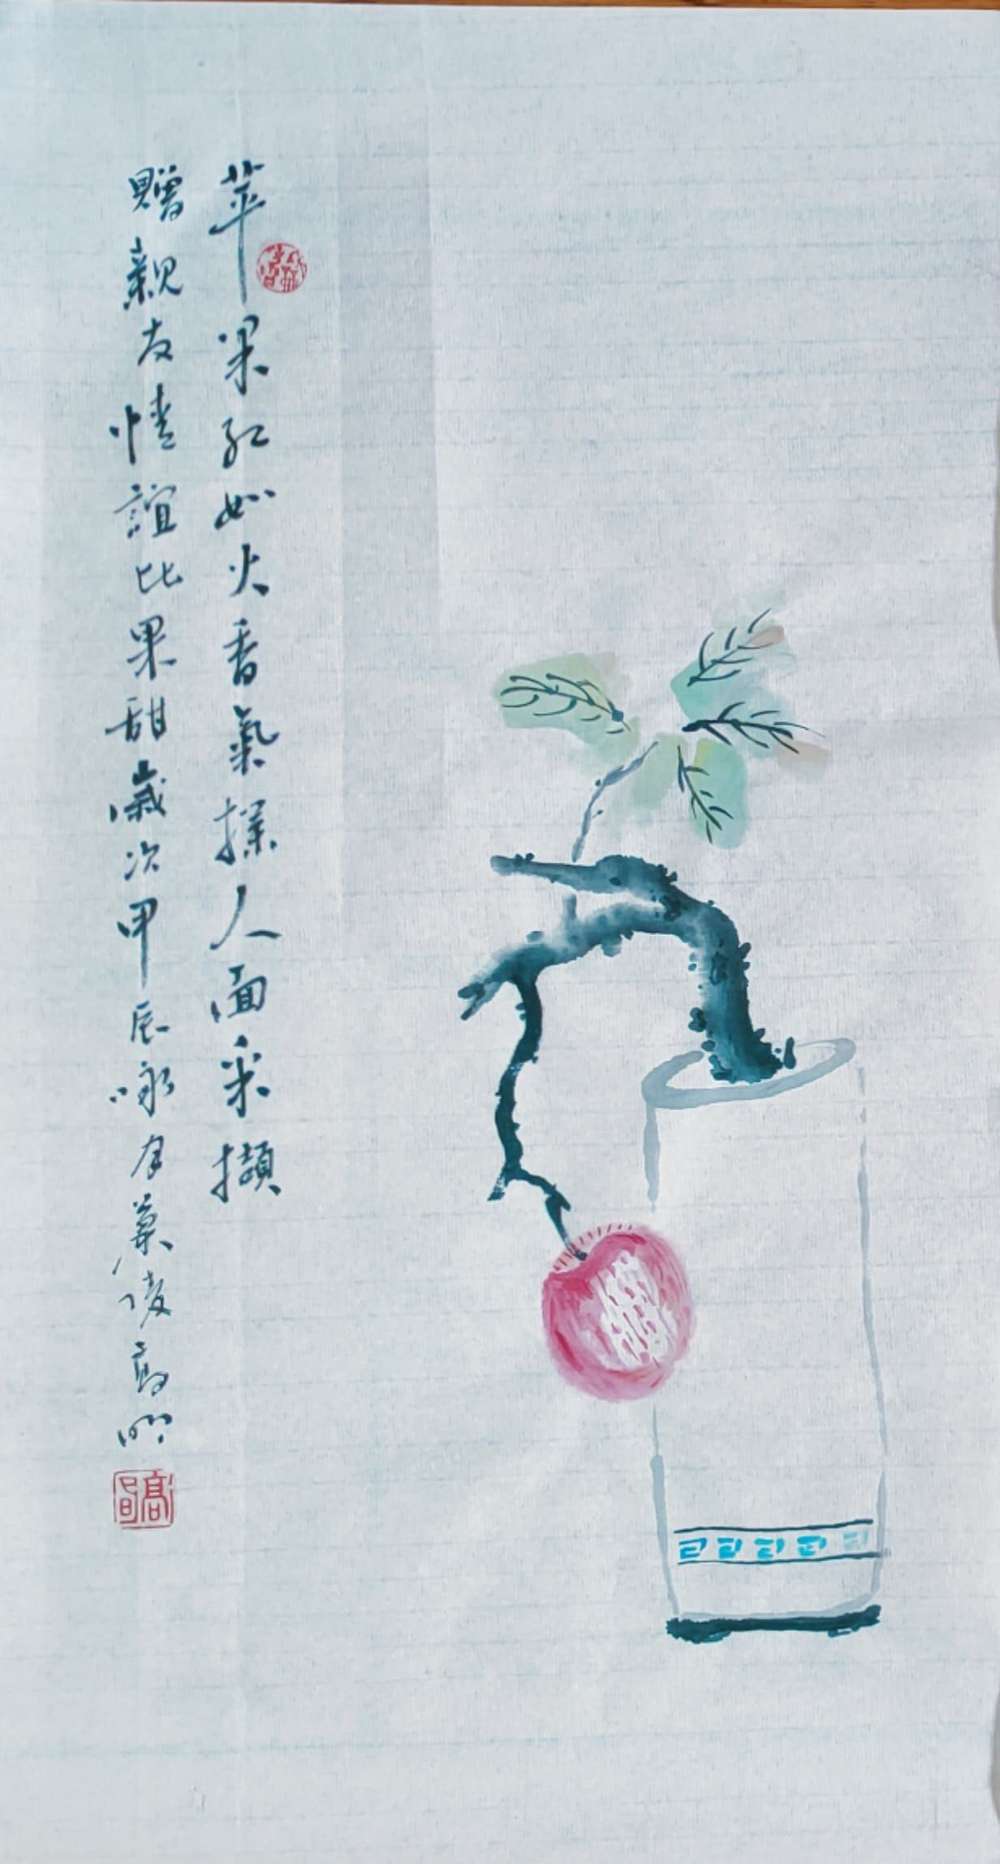 苹果红如火香氣撲人面采擷
贈親友情誼比果甜歲次甲辰咏月陵高明
高